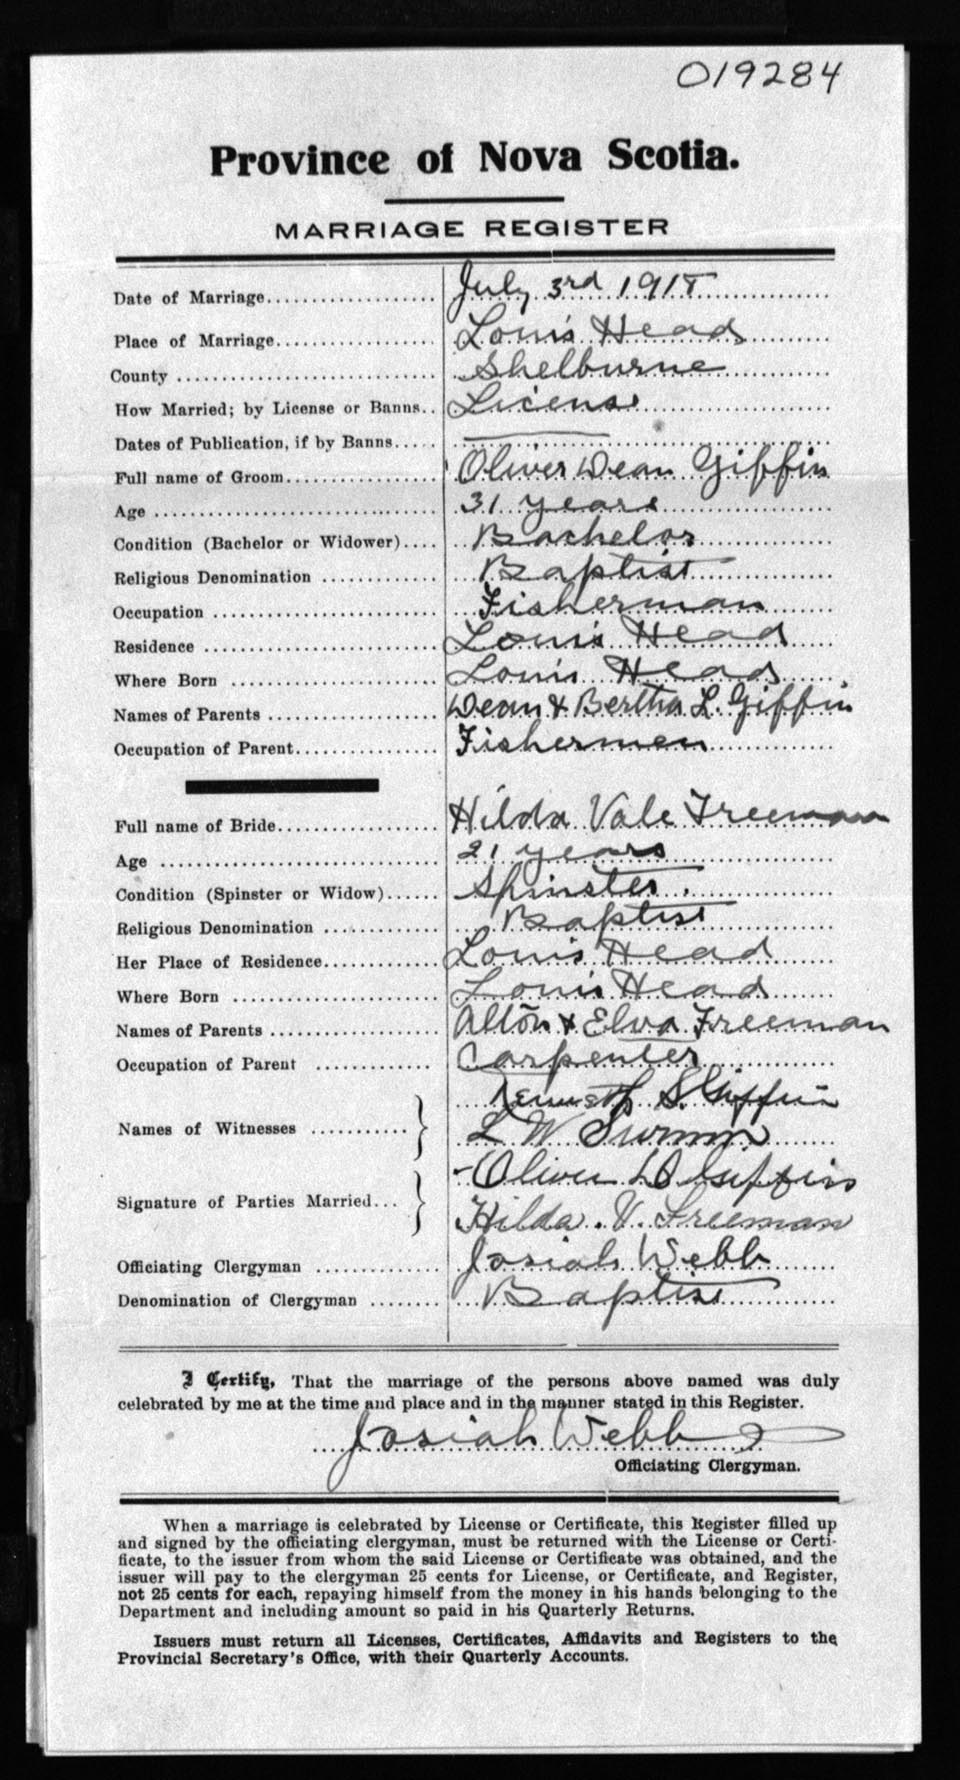 019284
Province of Nova Scotia.
MARRIAGE REGISTER
Date of Marriage.................... July 3rd 1918
Place of Marriage................... Louis Head
County .............................. Shelburne
How Married; by License or Banns.. License
Dates of Publication, if by Banns.....
Full name of Groom................. Oliver Dean Giffin
Age ................................. 31 years
Condition (Bachelor or Widower).... Bachelor
Religious Denomination ............. Baptist
Occupation .......................... Fisherman
Residence ........................... Louis Head
Where Born ........................ Louis Head
Names of Parents ................... Dean & Bertha L. Giffin
Occupation of Parent................ Fishermen
Full name of Bride.................. Hilda Vale Freeman
Age ................................ 21 years
Condition (Spinster or Widow)...... Spinster.
Religious Denomination ............. Baptist
Her Place of Residence............. Louis Head
Where Born ........................ Louis Head
Names of Parents ................... Alton & Elva Freeman
Occupation of Parent ............. Carpenter
Names of Witnesses ........... Kenneth S. Giffin
L W
Signature of Parties Married... Oliver D Giffin
Hilda. V. Freeman
Officiating Clergyman .............. Josiah Webb
Denomination of Clergyman ........ Baptist
I Certify, That the marriage of the persons above named was duly
celebrated by me at the time and place and in the manner stated in this Register.
Josiah Webb
Officiating Clergyman.
When a marriage is celebrated by License or Certificate, this Register filled up
and signed by the officiating clergyman, must be returned with the License or Certi-
ficate, to the issuer from whom the said License or Certificate was obtained, and the
issuer will pay to the clergyman 25 cents for License, or Certificate, and Register,
not 25 cents for each, repaying himself from the money in his hands belonging to the
Department and including amount so paid in his Quarterly Returns.
Issuers must return all Licenses, Certificates, Affidavits and Registers to the
Provincial Secretary's Office, with their Quarterly Accounts.